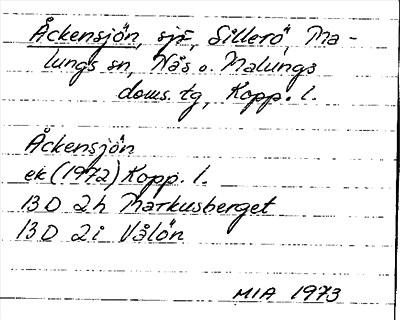 Åckensjön, sjö, Sillerö, Ma-
lungs sn, Nås o. Malungs
doms. tg, Kopp. l.
Åckensjön
ek (1972) Kopp. l.
13 D 2h Markusberget
13 D 2i Vålön
MIA 1973